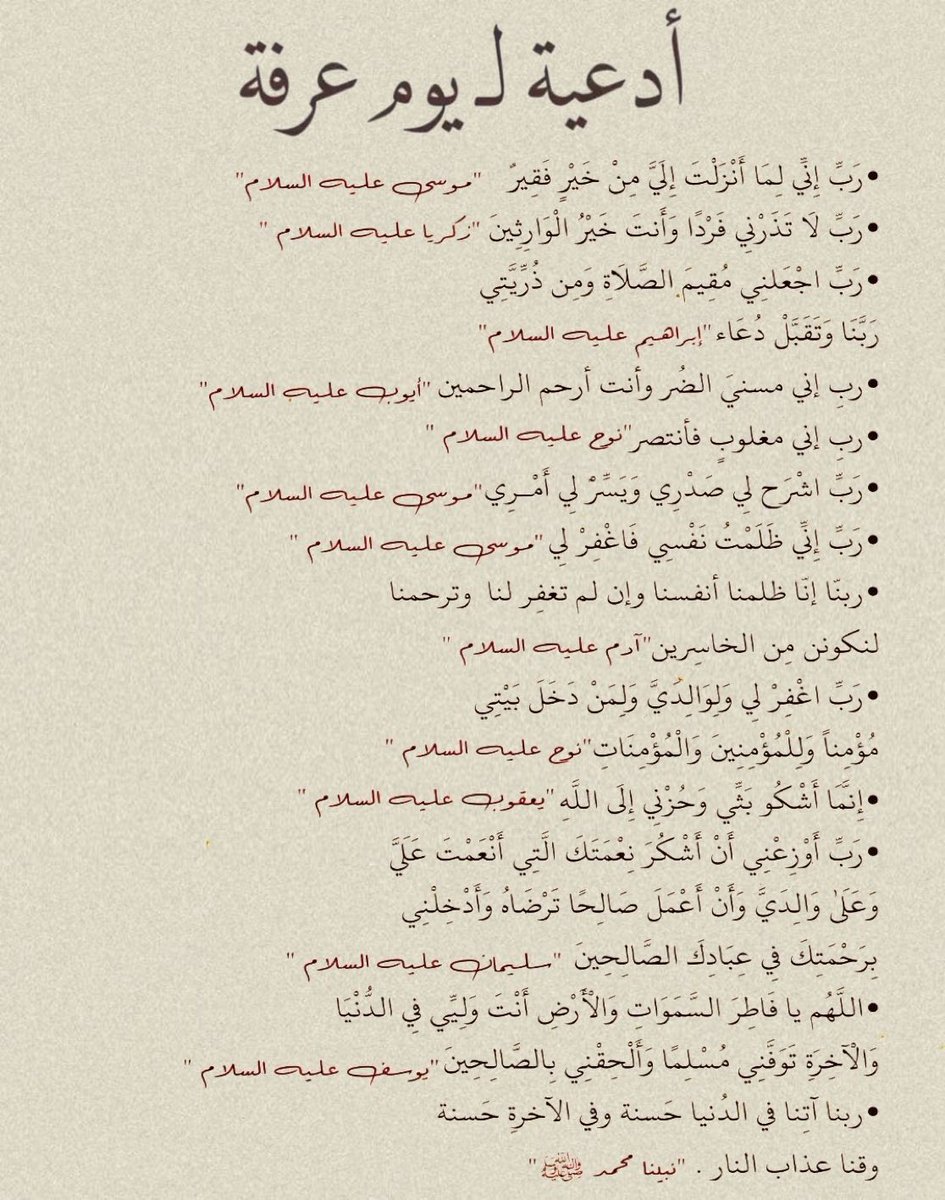 أدعية لـ يوم عرفة
•رَبِّ إِنِّي لِمَا أَنْزَلْتَ إِلَيَّ مِنْ خَيْرٍ فَقِيرٌ "موسى عليه السلام"
•رَبِّ لَا تَذَرْنِي فَرْدًا وَأَنتَ خَيْرُ الْوَارِثِينَ "زكريا عليه السلام "
•رَبِّ اجْعَلنِي مُقِيمَ الصَّلَاةِ وَمِن ذُرِّيَّتِي
رَبَّنَا وَتَقَبَّلْ دُعَاء "إبراهيم عليه السلام"
•ربِ إني مسنيَ الضُر وأنت أرحم الراحمين "أيوب عليه السلام"
•ربِ إني مغلوبٍ فأنتصر "نوح عليه السلام "
•رَبِّ اشْرَح لِي صَدْرِي وَيَسِّرْ لِي أَمْـرِي "موسى عليه السلام"
•رَبِّ إِنِّي ظَلَمْتُ نَفْسِي فَاغْفِرْ لِي "موسى عليه السلام "
•ربنّا إنّا ظلمنا أنفسنا وإن لم تغفِر لنا وترحمنا
لنكونن مِن الخاسِرين "آدم عليه السلام "
•رَبِّ اغْفِرْ لِي وَلِوَالِدَيَّ وَلِمَنْ دَخَلَ بَيْتِي
مُؤْمِناً وَلِلْمُؤْمِنِينَ وَالْمُؤْمِنَاتِ "نوح عليه السلام "
•إِنَّمَا أَشْكُو بَثِّي وَحُزْنِي إِلَى اللَّهِ "يعقوب عليه السلام "
•رَبِّ أَوْزِعْنِي أَنْ أَشْكُرَ نِعْمَتَكَ الَّتِي أَنْعَمْتَ عَلَيَّ
وَعَلَىٰ وَالِدَيَّ وَأَنْ أَعْمَلَ صَالِحًا تَرْضَاهُ وَأَدْخِلْنِي
بِرَحْمَتِكَ فِي عِبَادِكَ الصَّالِحِينَ "سليمان عليه السلام "
•اللَّهُم يا فَاطِرَ السَّمَوَاتِ وَالْأَرْضِ أَنْتَ وَلِيِّي فِي الدُّنْيَا
وَالْآخِرَةِ تَوَفَّنِي مُسْلِمًا وَأَلْحِقْنِي بِالصَّالِحِينَ "يوسف عليه السلام "
•ربنا آتِنا في الدُنيا حَسنة وفي الآخرةِ حَسنة
وقنا عذاب النار . "نبينا محمد ﷺ "